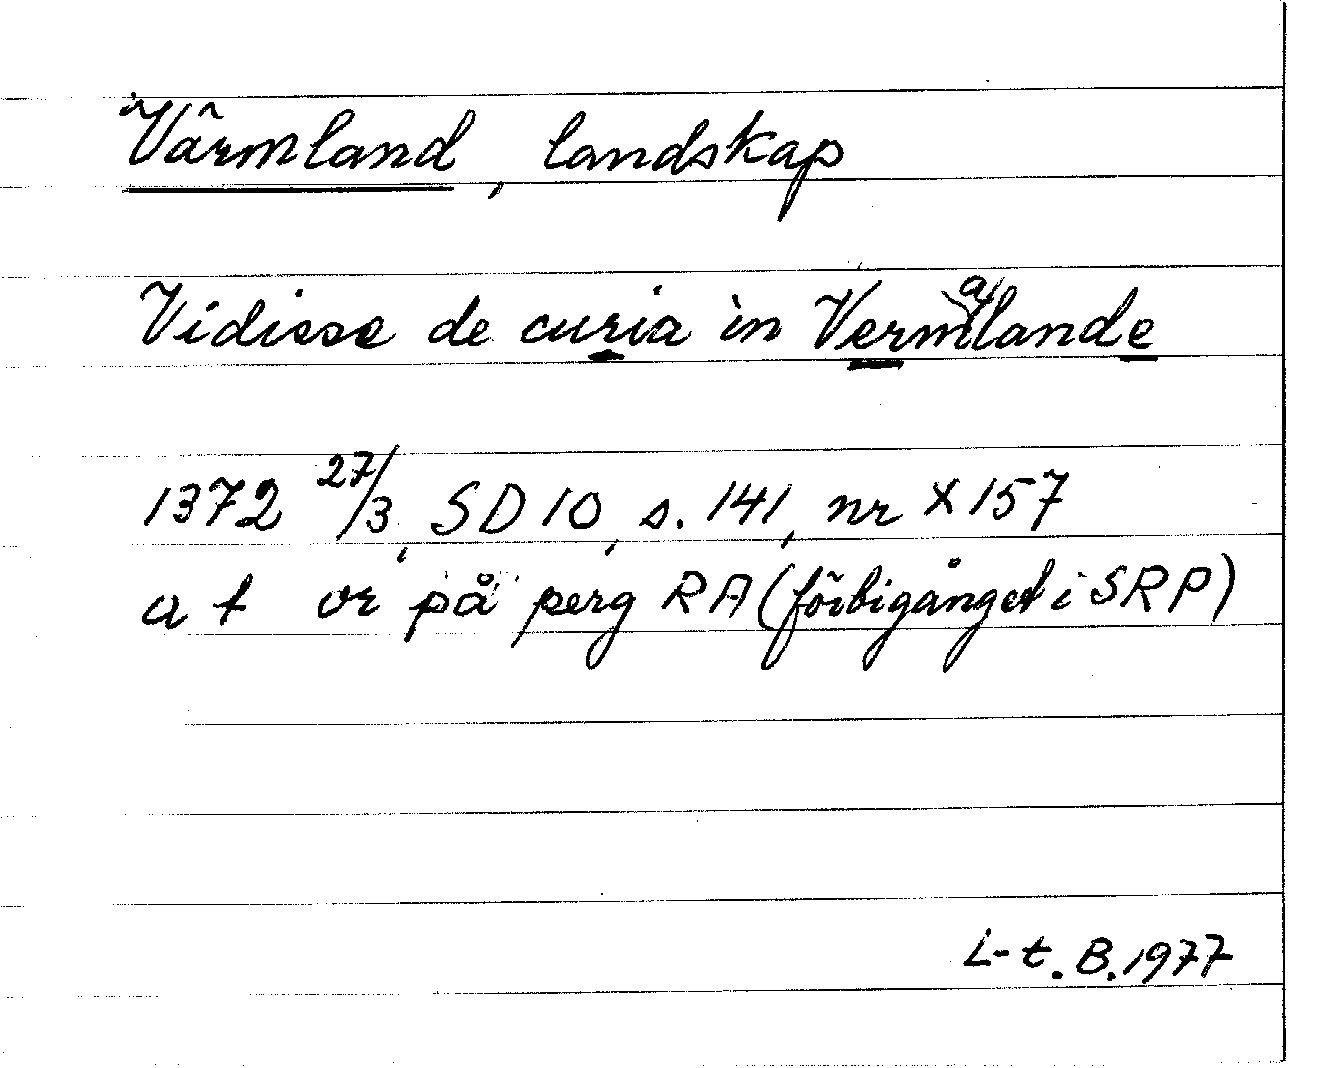 Värmland, landskap
Vidisse de curia in Vermalande
1372 27/3, SD 10, s. 141, nr X 157
a t or på perg RA (förbigånget i SRP)
L-t. B. 1977